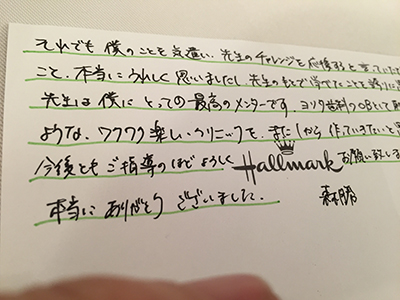 それでも僕のことを気遣い、先生のチャレンジを応援すると言っていただ
こと、本当にうれしく思いましたし、先生のもとで学べたことを誇りに思
先生は僕にとっての最高のメンターです。ヨリタ歯科のOBとして
ような、ワクワク楽しいクリニックを、また1から作っていきたいと思
今後ともご指導のほどよろしく Hallmark お願い致しま
本当にありがとうございました。 森勝